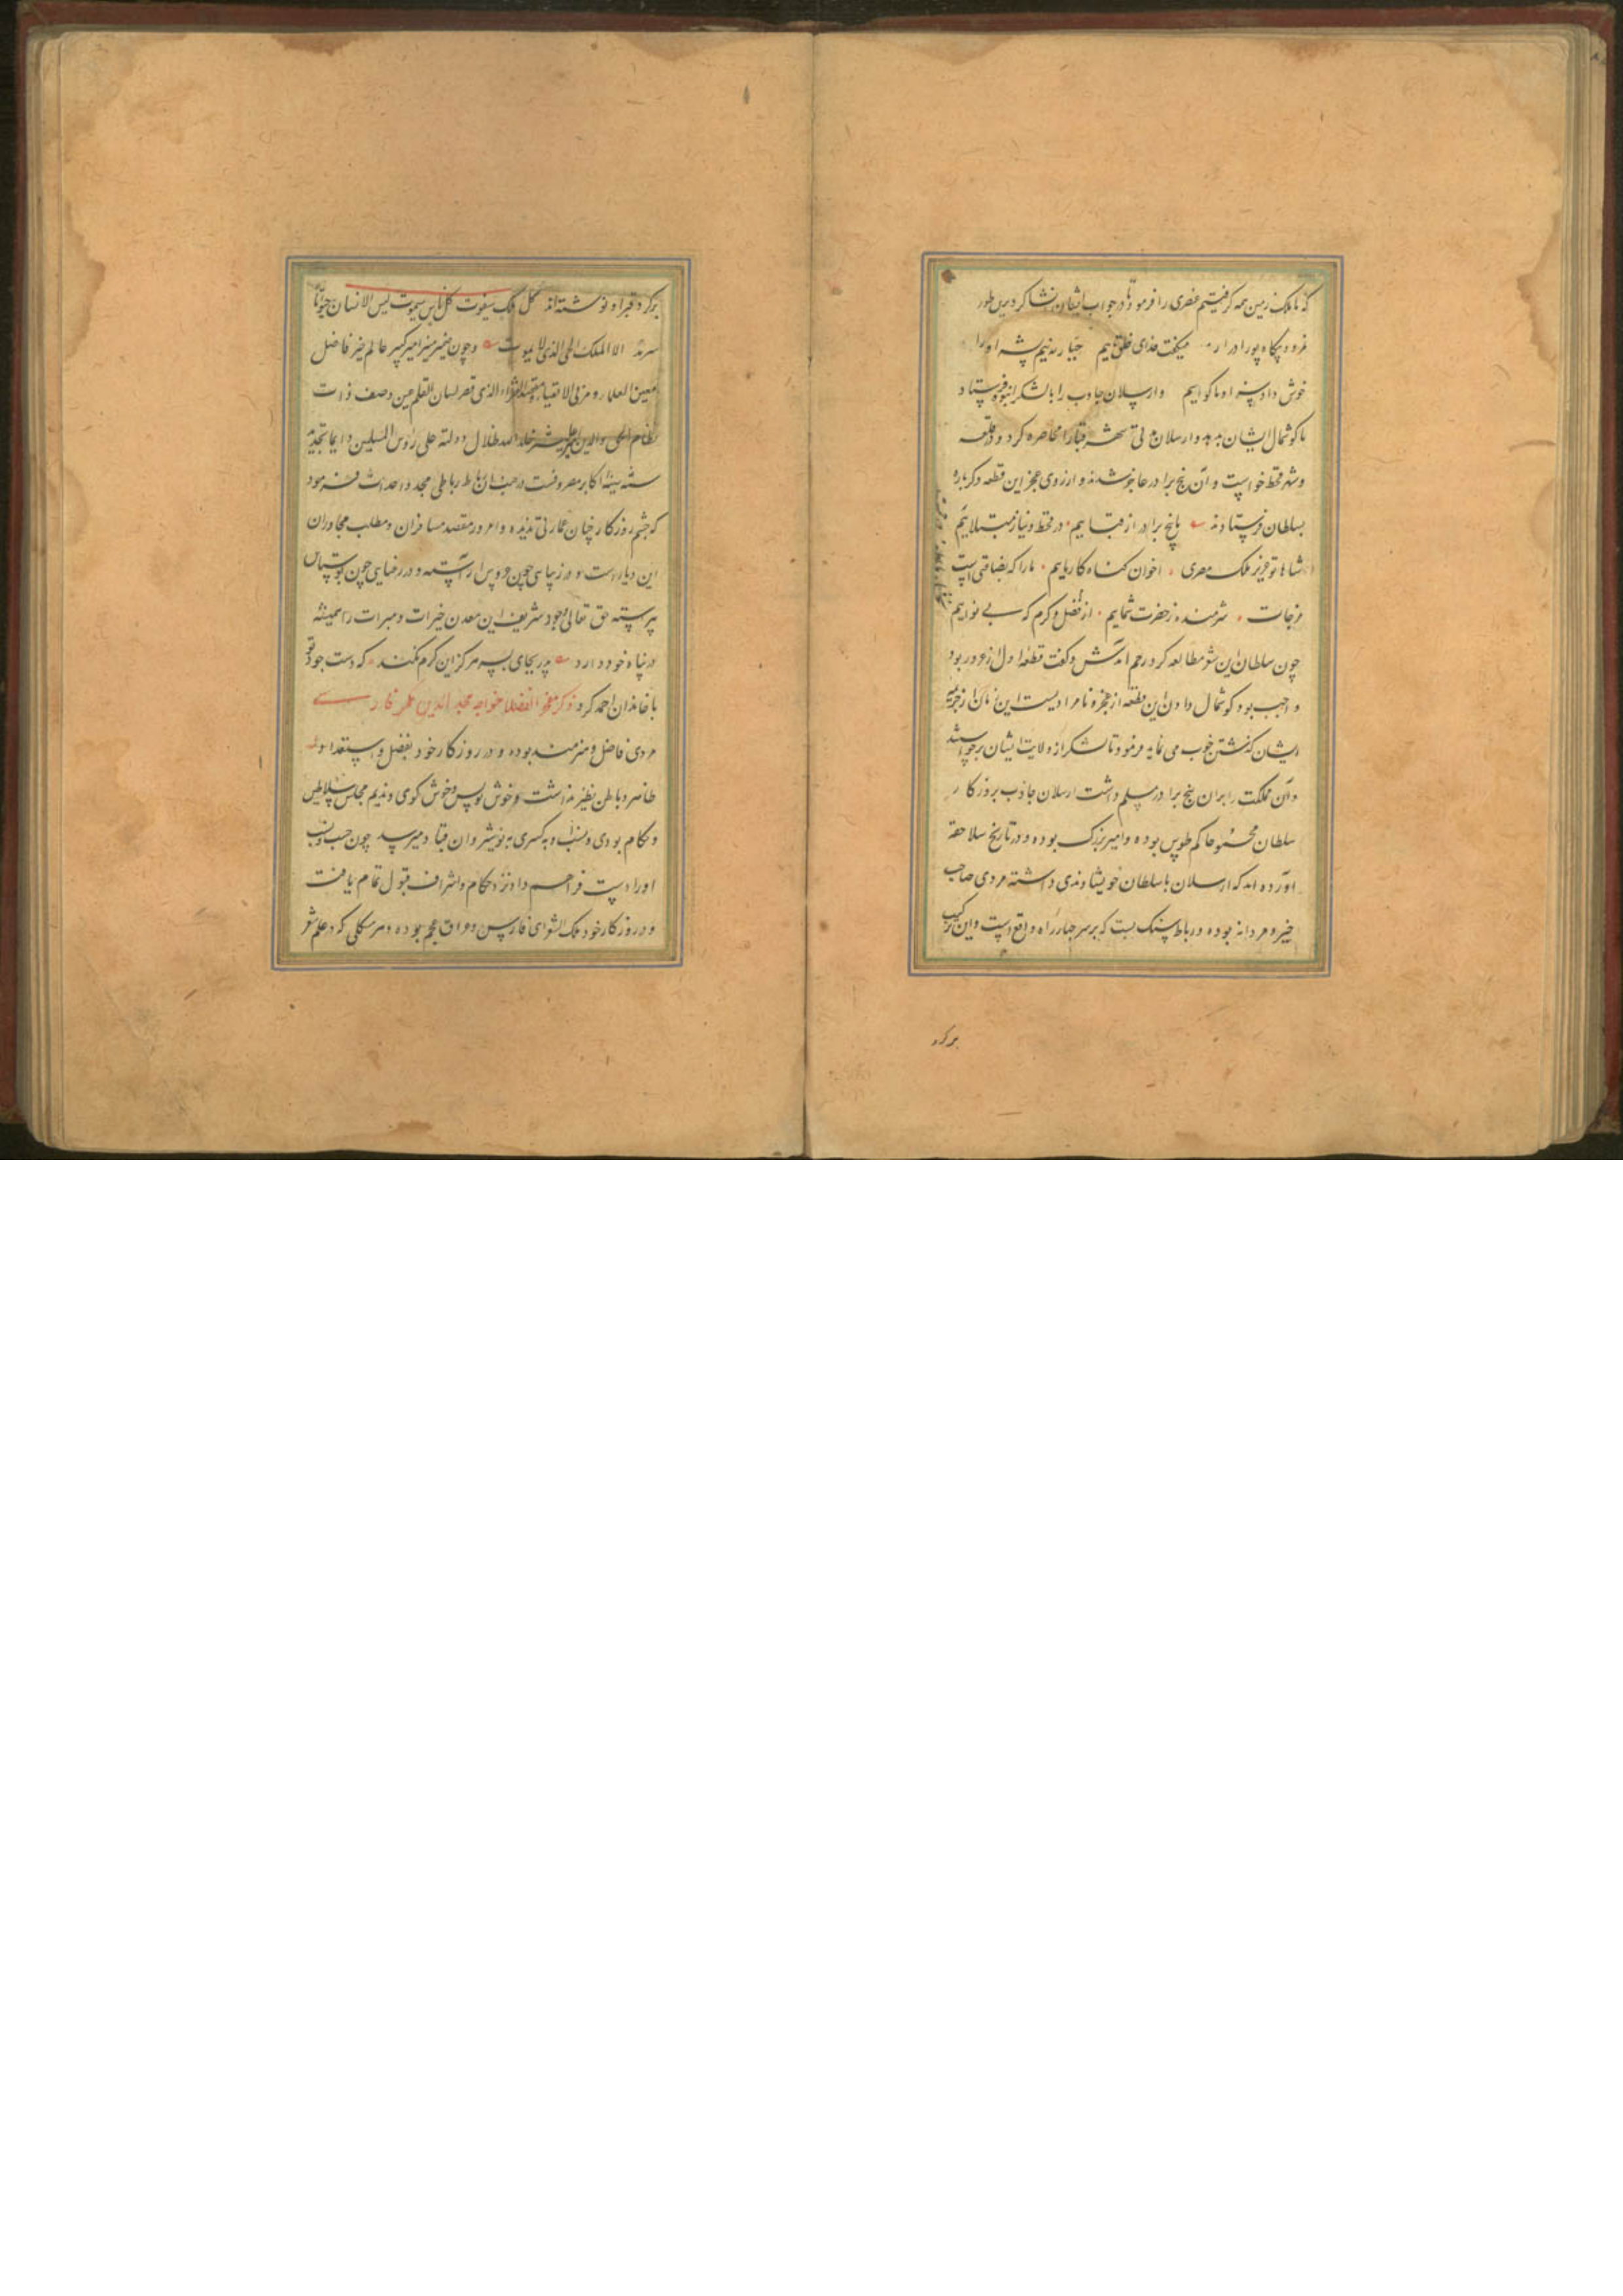 که ما ملک زمین همه گرفتیم عنصری را فرمود تا در جواب ایشان انشا کرد برین طور
نمرود بکاه پور آزر میگفت خدای خلق ماییم جبار به نیم پشه او را
خوش داد سزا و ما گواییم و ارسلان جاذب را با لشکر انبوه فرستاد
تا گوشمال ایشان بدهد و ارسلان مدتی شهر قبا را محاصره کرد و در قلعه
و شهر قحط خواست و آن پنج برادر عاجز شدند و از روی عجز این قطعه دگرباره
بسلطان فرستادند ما پنج برادر از قباییم در قحط و نیاز مبتلاییم
شاها تو عزیز ملک مصری اخوان گناه کار ماییم ما را که بضاعتی است
مزجات شرمنده ز حضرت شماییم از فضل و کرم که بی نواییم
چون سلطان این شعر مطالعه کرد رحم آمدش و گفت قطعه اول از غرور بود
و واجب بود گوشمال دادن این قطعه از عجز و نامرادیست این زمان از جریمه
ایشان گذشتن خوب می نماید فرمود تا لشکر از ولایت ایشان برخواستند
و آن مملکت را بر آن پنج برادر مسلم داشت ارسلان جاذب بروزگار
سلطان محمود حاکم طوس بوده و امیر بزرگ بوده و در تاریخ سلاجقه
آورده اند که ارسلان با سلطان خویشاوندی داشته مردی صاحب
خیر و مردانه بوده و رباط سنگ بست که بر سر چهار راه واقع است و این ترکیب
بر گرد
بر گرد قبر او نوشته اند کل ملک سیفوت کل ناس سیموت لیس الانسان حیوتا
سرمد الا الملک الحی الذی لا یموت و چون خیر میر امیر کبیر عالم خیر فاضل
معین العلما و مربی الاتقیا و مقصد الفقراء الذی قصر لسان القلم عن وصف ذات
نظام الحق والدین علیشیر خلد الله ظلال دولته علی رؤس المسلمین دایما بتجدید
سنت سنیه اکابر مصروفست در جنب آن رباط رباطی مجدد احداث فرمود
که چشم روزگار چنان عمارتی ندیده و امروز مقصد مسافران و مطلب مجاوران
این دیار است و در زیبایی چون عروس آراسته و در رعنایی چون بوستان
پیراسته حق تعالی وجود شریف این معدن خیرات و مبرات را همیشه
در پناه خود دارد پدر بجای پسر هرگز این کرم نکند که دست جود تو
با خاندان احمد کرد ذکر مفخر الفضلا خواجه مجد الدین همگر فارسی
مردی فاضل و هنرمند بوده و در روزگار خود بفضل و استعداد
ظاهر و باطن نظیر نداشت و خوش نویس و خوش گوی و ندیم مجلس سلاطین
و حکام بودی و نسب او به کسری نوشیروان قباد میرسد چون حسب و نسب
او را دست فراهم داد نزد حکام و اشراف قبول تمام یافت
و در روزگار خود ملک الشعرای فارس و عراق عجم بوده و هر مشکلی که در علم شعر